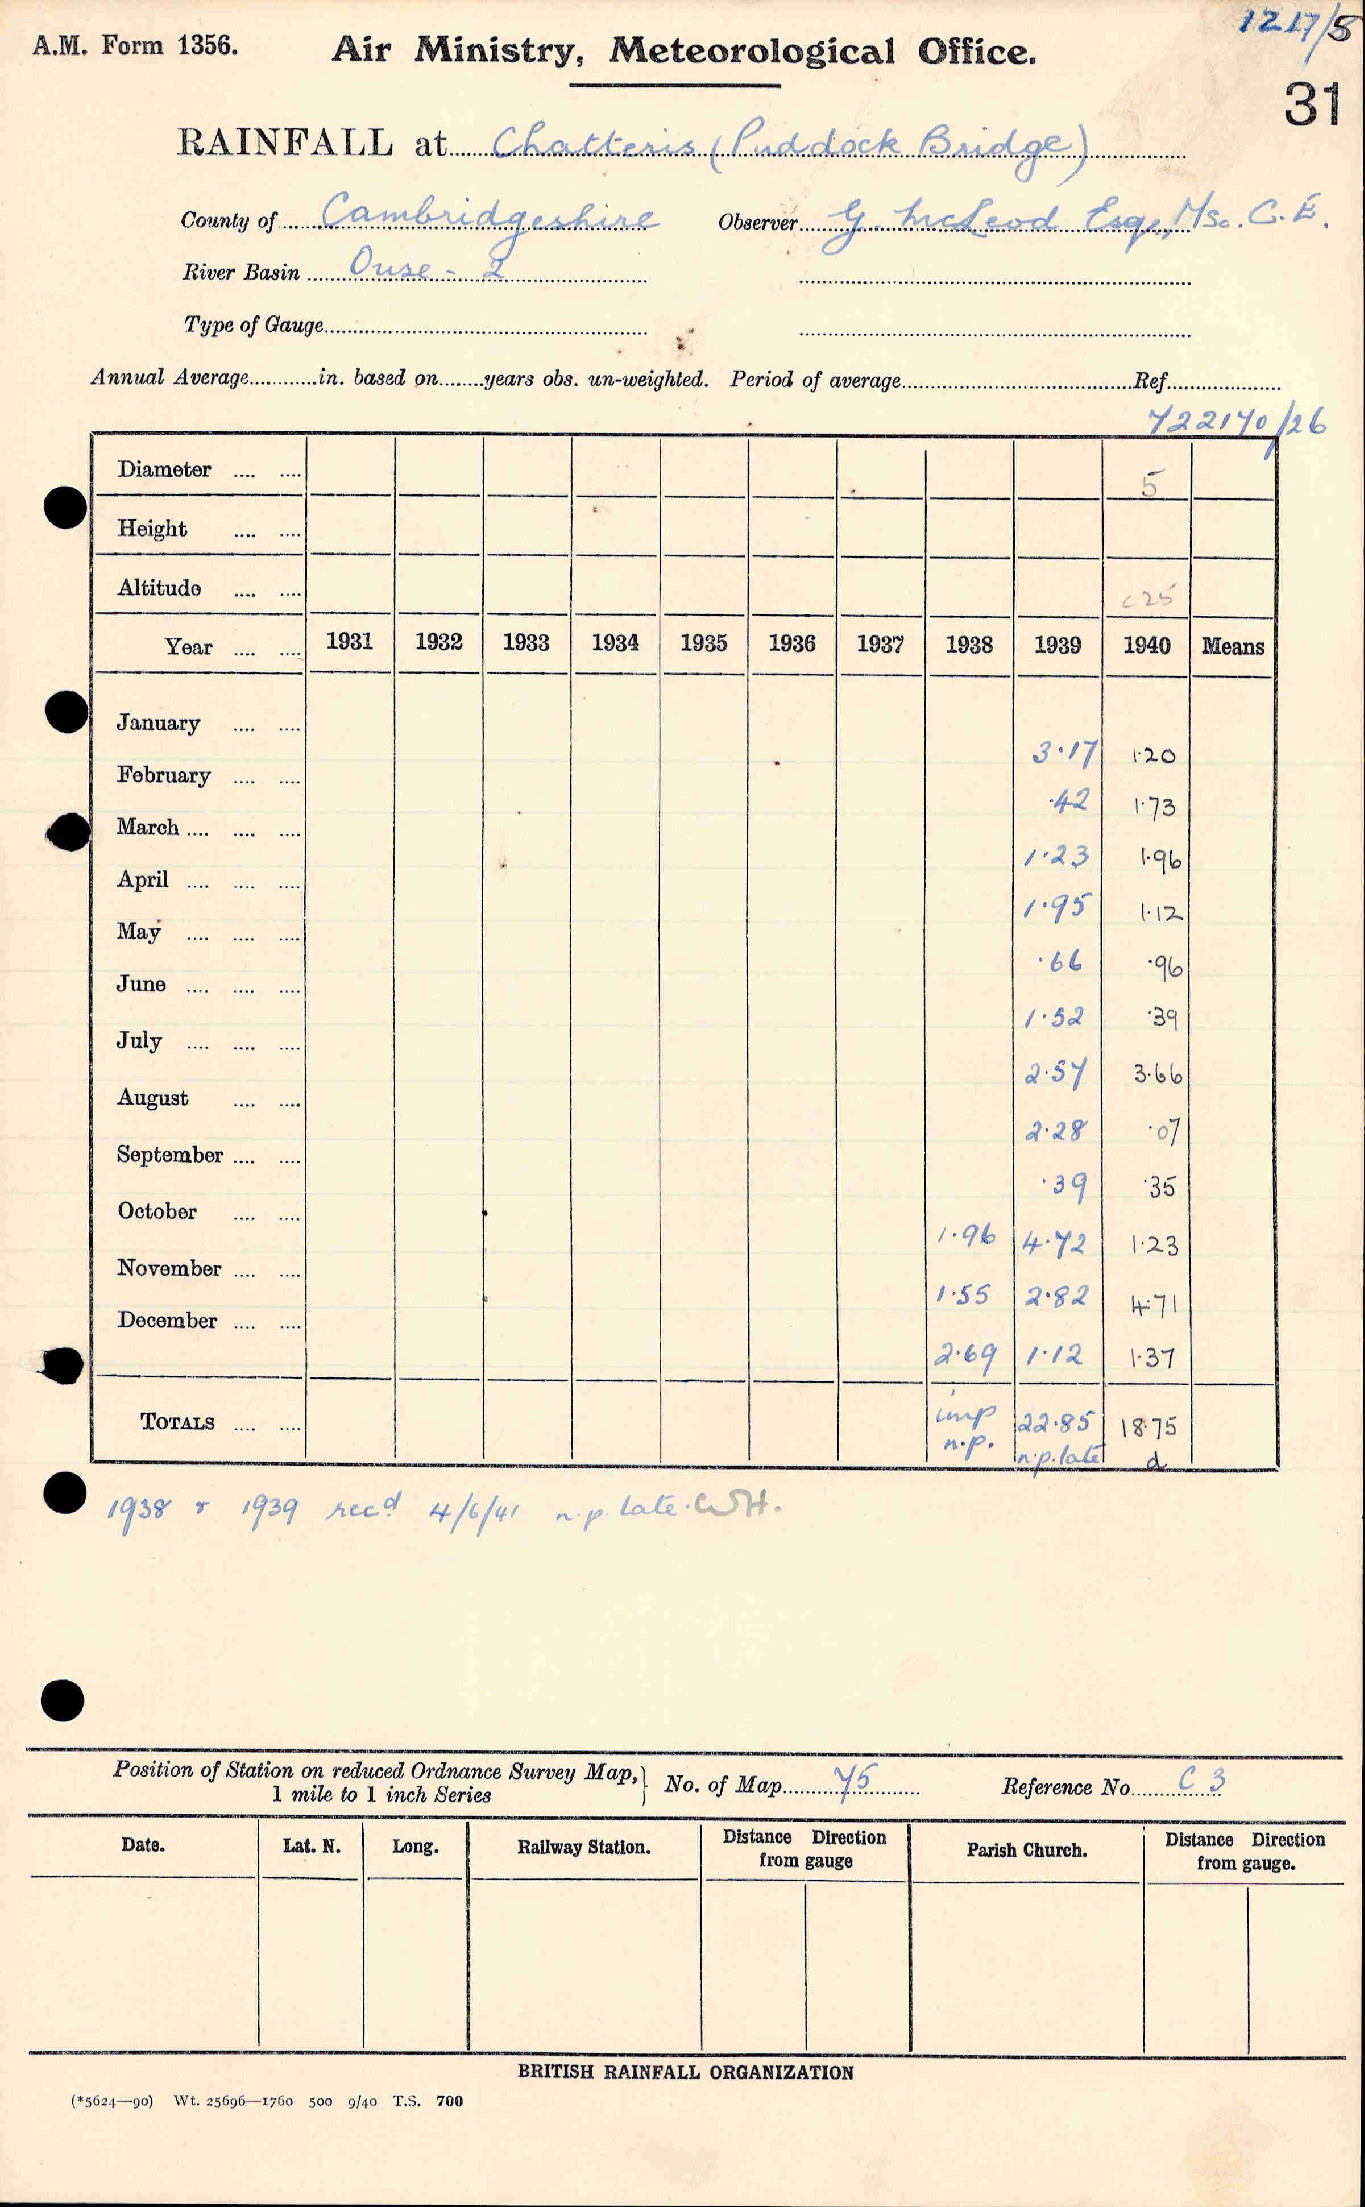 1217/5
A.M. Form 1356. Air Ministry, Meteorological Office.
31
RAINFALL at Chatteris (Puddock Bridge)
County of Cambridgeshire Observer G. McLeod Esq., MSc. C.E.
River Basin Ouse - 2
Type of Gauge
Annual Average in. based on years obs. un-weighted. Period of average Ref
722170/26
Diameter .... .... 5
Height .... ....
Altitude .... .... c 25
Year .... .... 1931 1932 1933 1934 1935 1936 1937 1938 1939 1940 Means
January .... .... 3.17 1.20
February .... .... .42 1.73
March .... .... .... 1.23 1.96
April .... .... .... 1.95 1.12
May .... .... .... .66 .96
June .... .... .... 1.52 .39
July .... .... .... 2.57 3.66
August .... .... 2.28 .07
September .... .... .39 .35
October .... .... 1.96 4.72 1.23
November .... .... 1.55 2.82 4.71
December .... .... 2.69 1.12 1.37
TOTALS .... .... imp 22.85 18.75
n.p. n.p. late d
1938 & 1939 recd 4/6/41 n.p. late. CWH.
Position of Station on reduced Ordnance Survey Map, } No. of Map 75 Reference No. C 3
1 mile to 1 inch Series
Date. Lat. N. Long. Railway Station. Distance Direction from gauge Parish Church. Distance Direction from gauge.
BRITISH RAINFALL ORGANIZATION
(*5624—90) Wt. 25696—1760 500 9/40 T.S. 700